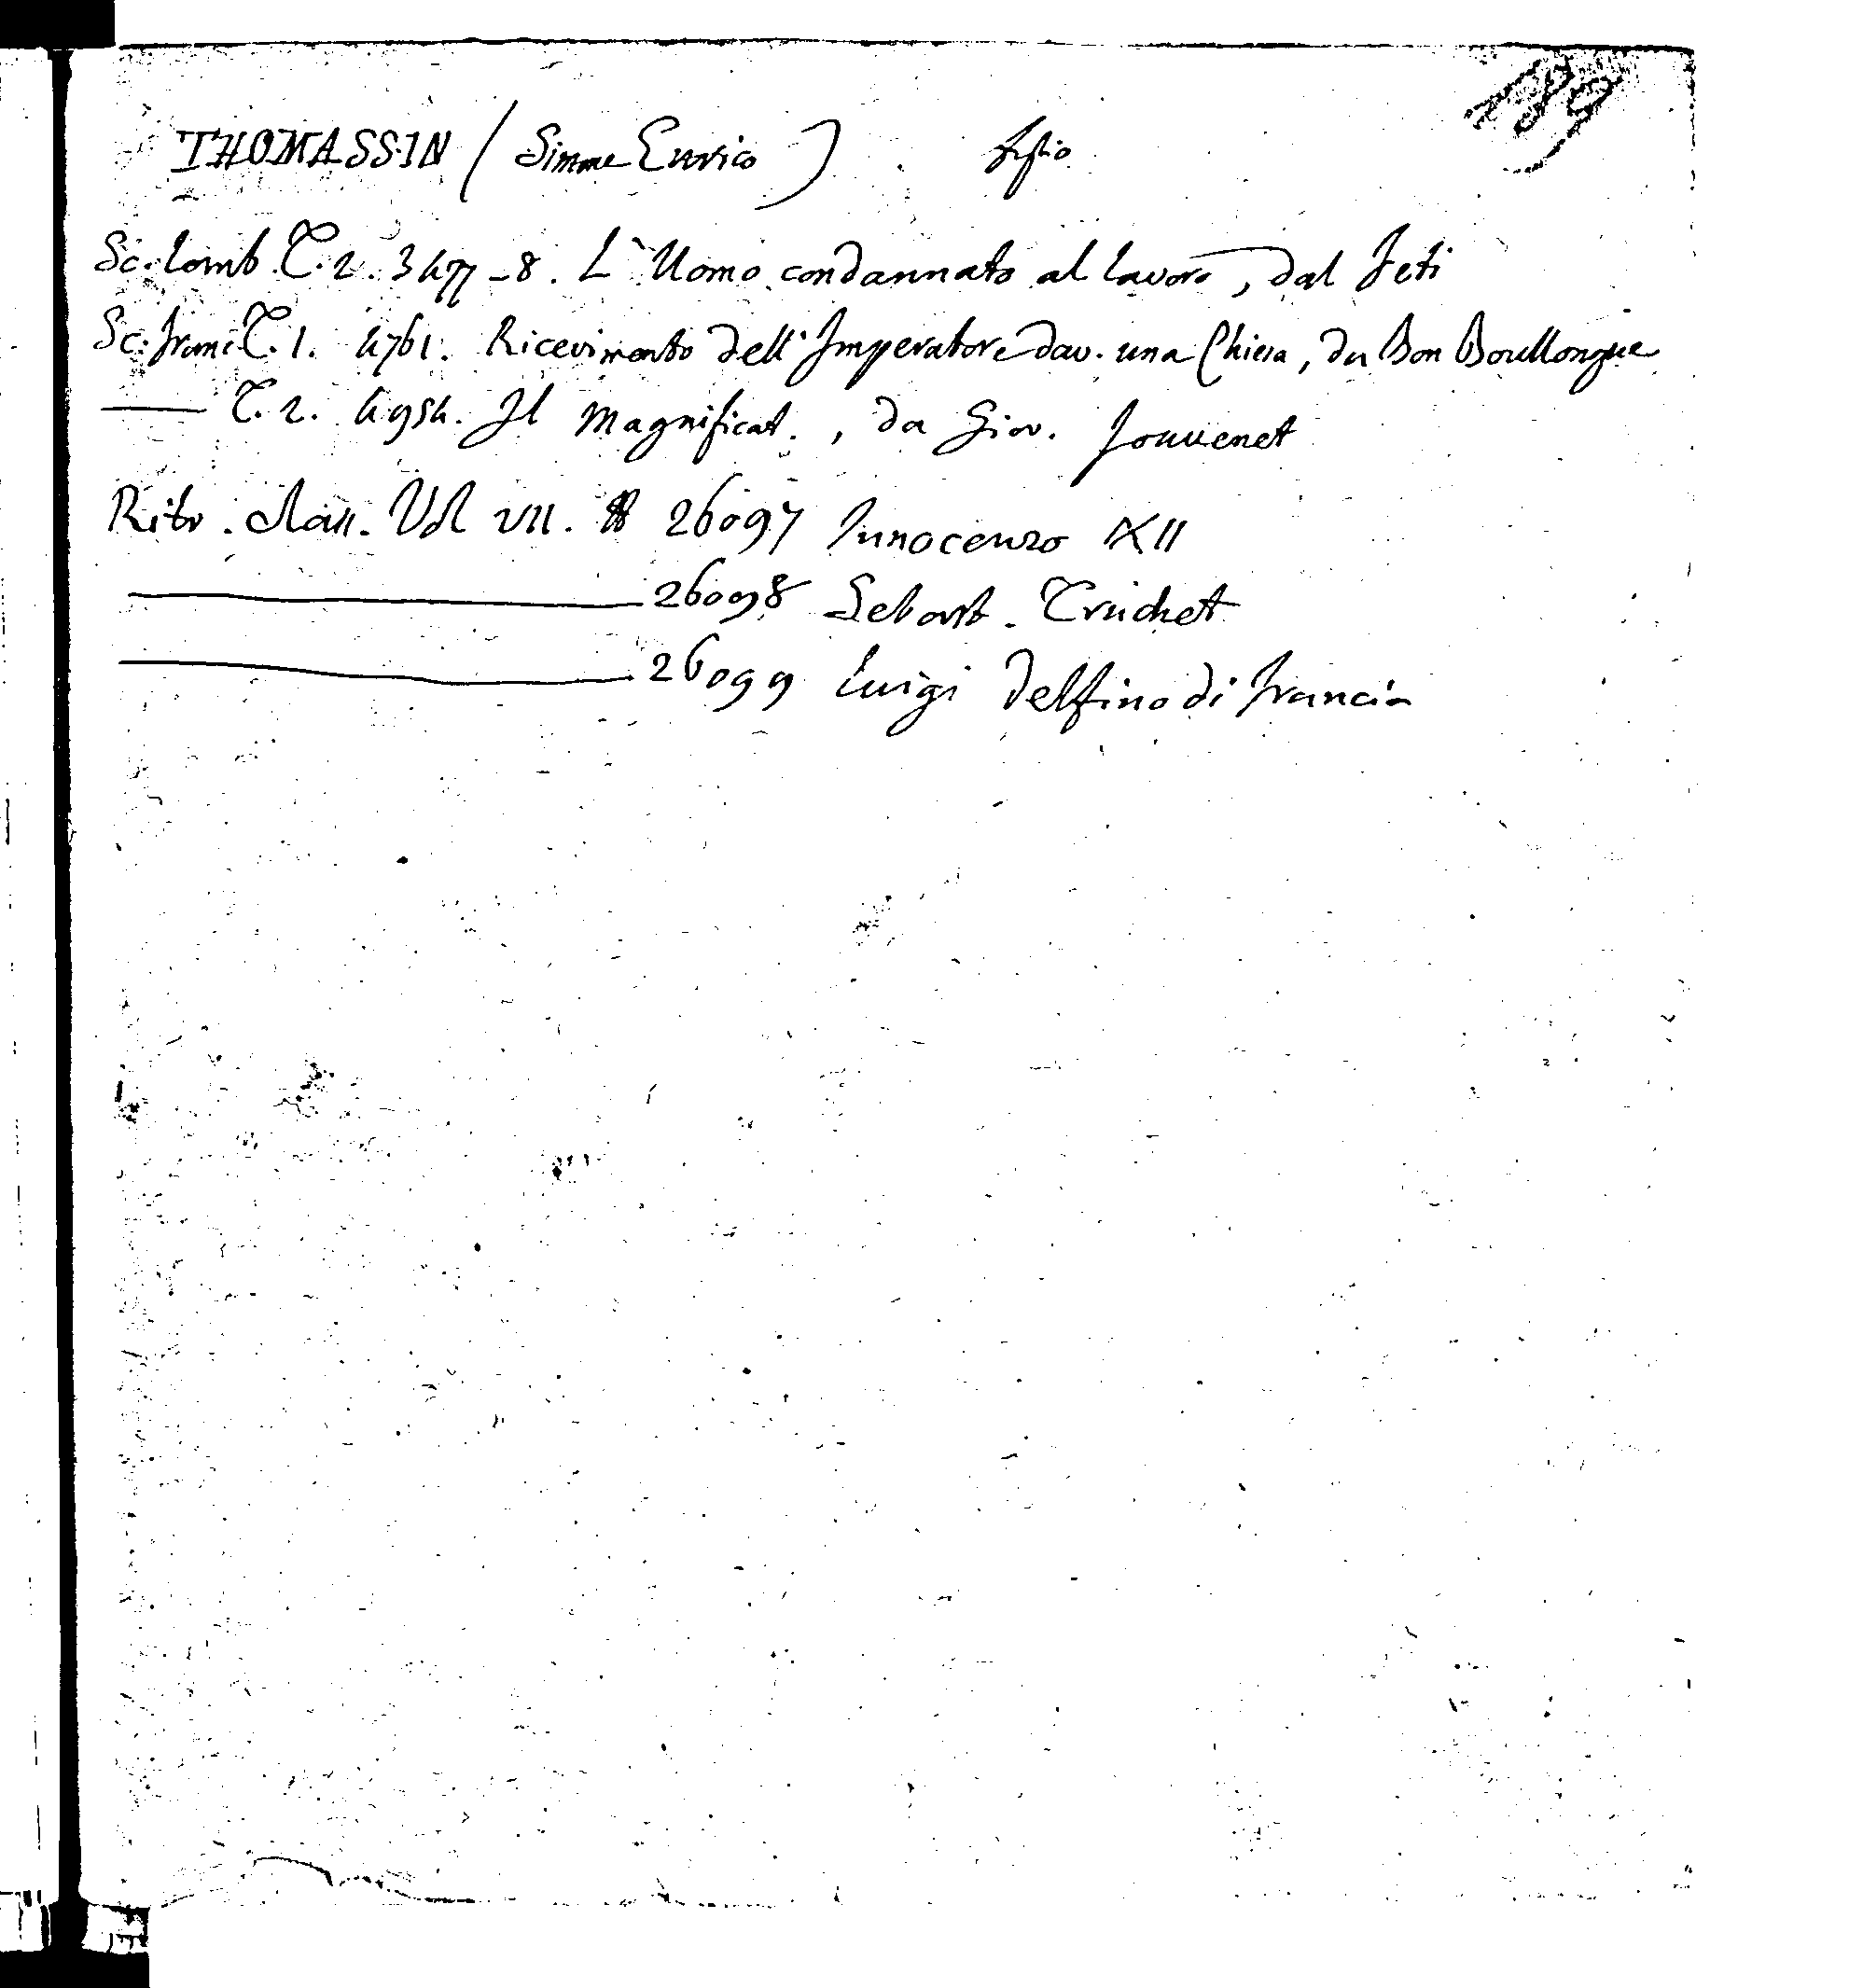 189
THOMASSIN (Simone Enrico) figlio
Sc. Lomb. T. 2. 3477-8. L'Uomo condannato al lavoro, dal Feti
Sc. franc. T. 1. 4761. Ricevimento dell'Imperatore dav. una Chiesa, da Bon Boullongue
—— T. 2. 4954. Il Magnificat., da Giov. Jouvenet
Ritr. Class. Vol VII. 26097 Innocenzo XII
—— 26098 Sebast. Truchet
—— 26099 Luigi Delfino di Francia